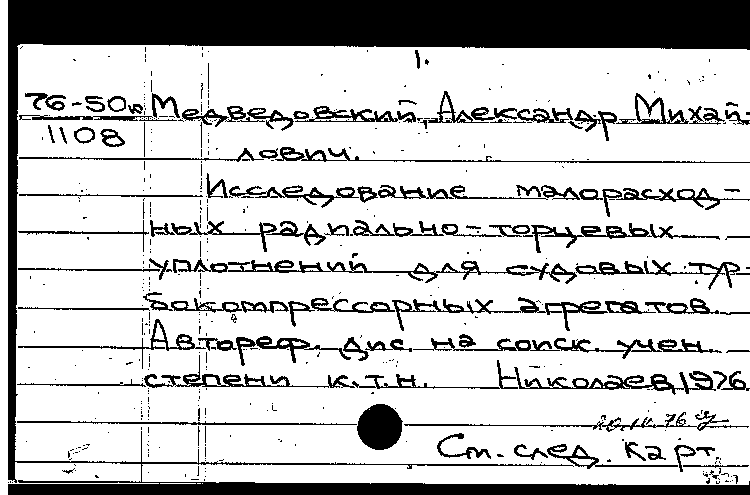 1.
76-50ю Медведовский, Александр Михай-
1108
лович.
Исследование малорасход-
ных радиально-торцевых
уплотнений для судовых тур-
бокомпрессорных агрегатов.
Автореф. дис. на соиск. учен.
степени к.т.н. Николаев, 1976.
20.IV.76
См. след. карт.